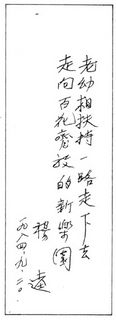 老幼相扶持一路走下去
走向百花齊放的新樂園
楊逵
一九八四.九.二〇.